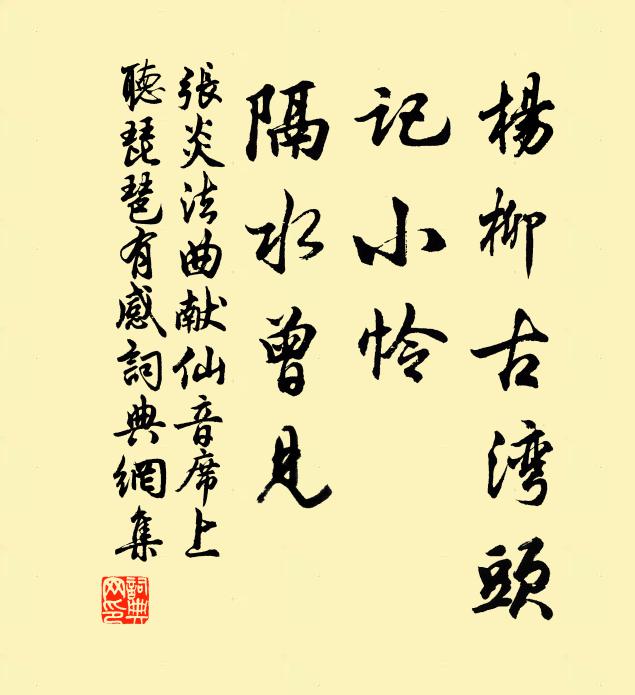 楊柳古湾頭
記小怜
隔水曾見
張炎法曲献仙音席上
聽琵琶有感詞典網集
詞典網印